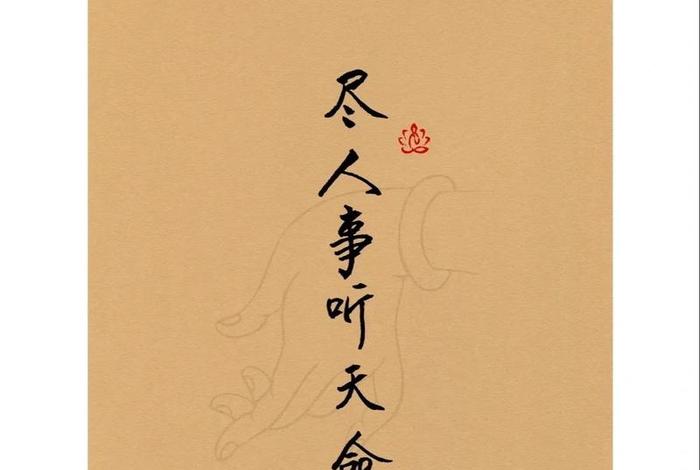 尽人事听天命